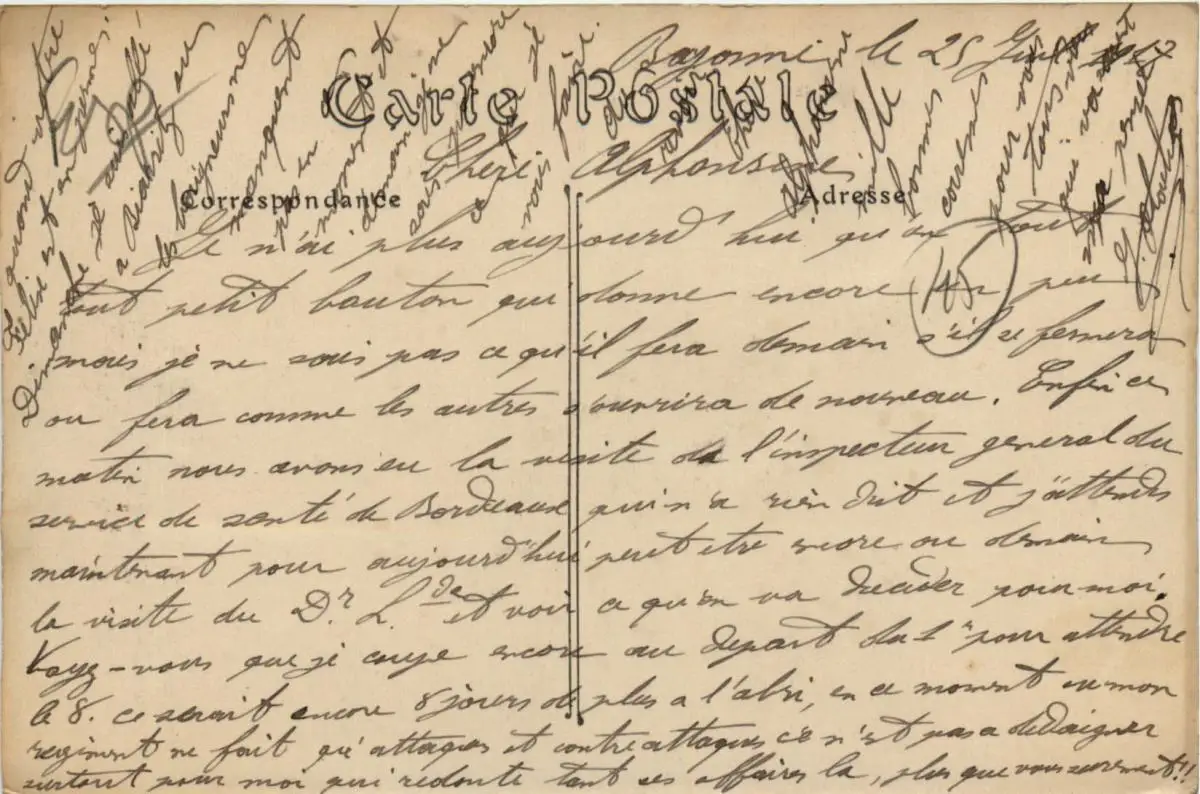 Bayonne le 25 Juin 1917
Carte Postale
Chère Alphonsine
Correspondance
Adresse
Je n'ai plus aujourd'hui qu'un tout
tout petit bouton qui donne encore un peu
mais je ne sais pas ce qu'il fera demain s'il se fermera
ou fera comme les autres s'ouvrira de nouveau. Enfin ce
matin nous avons eu la visite de l'inspecteur general du
service de santé de Bordeaux qui n'a rien dit et j'attends
maintenant pour aujourd'hui peut etre encore ou demain
la visite du Dr. L. et voir ce qu'on va decider pour moi.
Voyez-vous que je coupe encore au depart du 1er pour attendre
le 8. ce serait encore 8 jours de plus a l'abri, en ce moment ou mon
regiment ne fait qu'attaques et contre attaques ce n'est pas a dedaigner
surtout pour moi qui redoute tant ses affaires la, plus que vous surement!!
145
quand votre
Felix est en permes.
Dimanche je suis allé
a Biarritz ou
les baigneurs ne
manquent
pas en
moment et
sans gêne
ce
je
vous
faire
Alphonsine
mille
bonnes
caresses
pour vous
tous
qui va